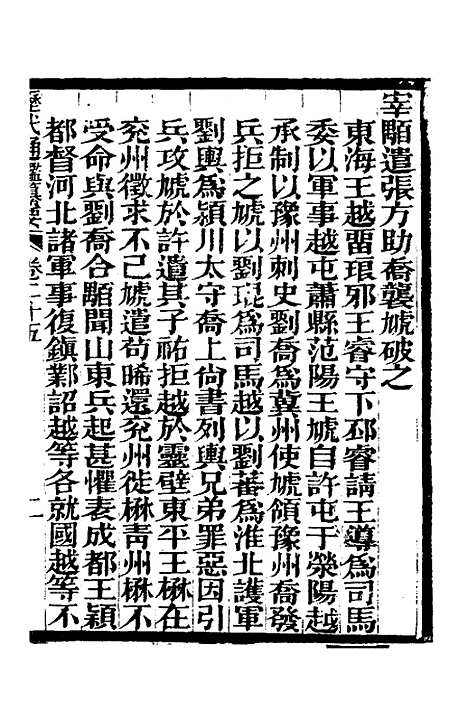 宰顒遣張方助喬襲虓破之
東海王越留琅邪王睿守下邳睿請王導爲司馬
委以軍事越屯蕭縣范陽王虓自許屯于滎陽越
承制以豫州刺史劉喬爲冀州使虓領豫州喬發
兵拒之虓以劉琨爲司馬越以劉蕃爲淮北護軍
劉輿爲潁川太守喬上尙書列輿兄弟罪惡因引
兵攻虓於許遣其子祐拒越於靈壁東平王楙在
兗州徵求不已虓遣苟晞還兗州徙楙青州楙不
受命與劉喬合顒聞山東兵起甚懼表成都王穎
都督河北諸軍事復鎭鄴詔越等各就國越等不
歷代通鑑纂要 卷二十五 二